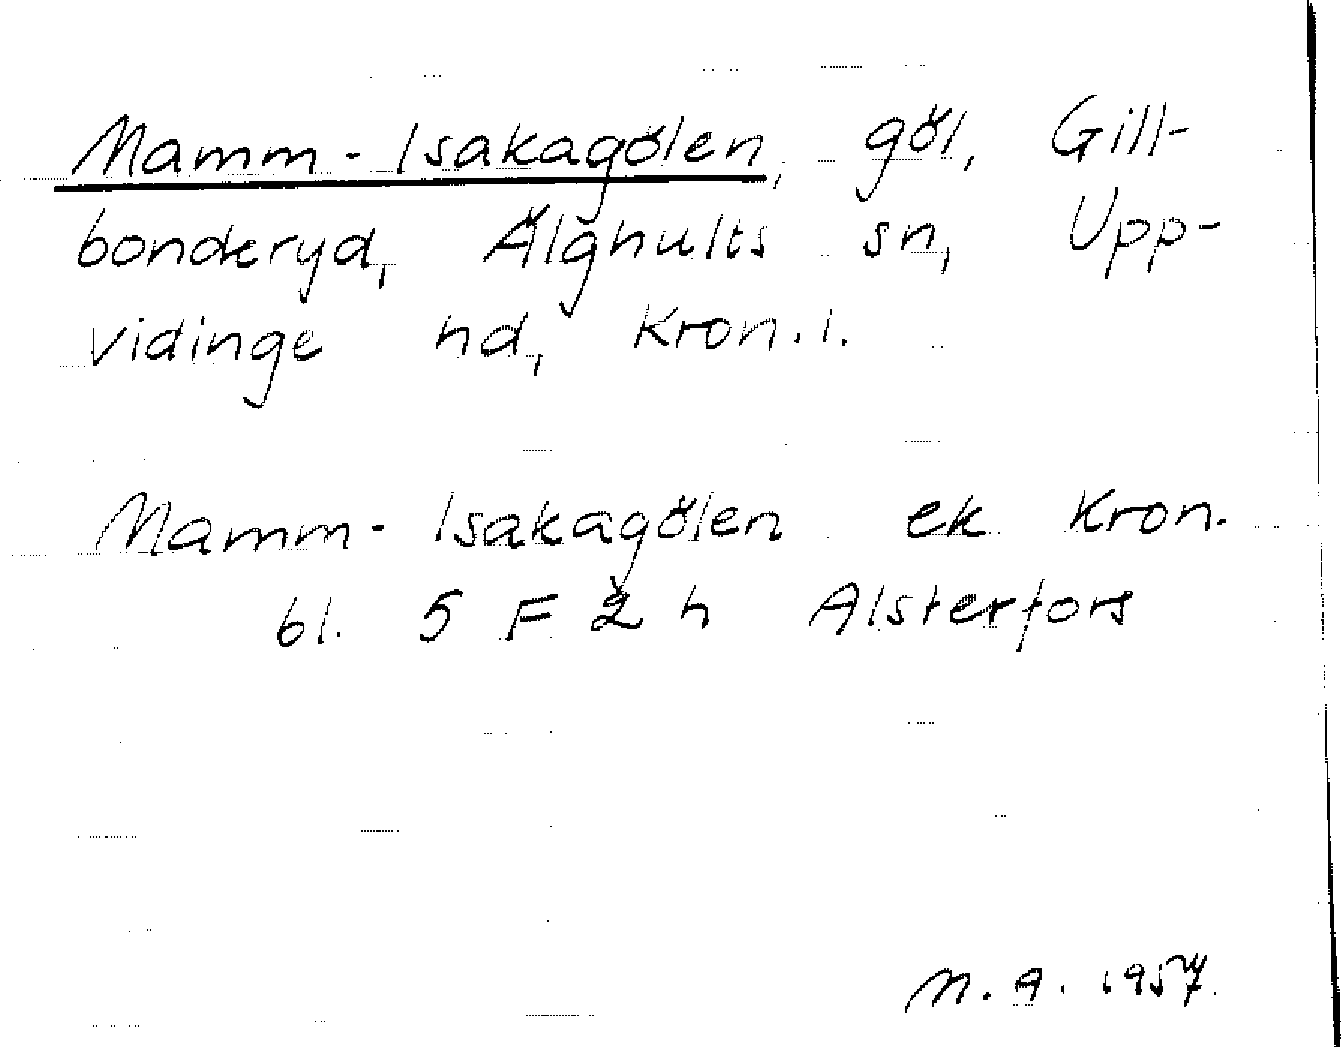 Mamm-Isakagölen, göl, Gill-
bonderyd, Älghults sn, Upp-
vidinge hd, Kron. l.
Mamm-Isakagölen ek Kron.
bl. 5 F 2 h Alsterfors
M. A. 1957.